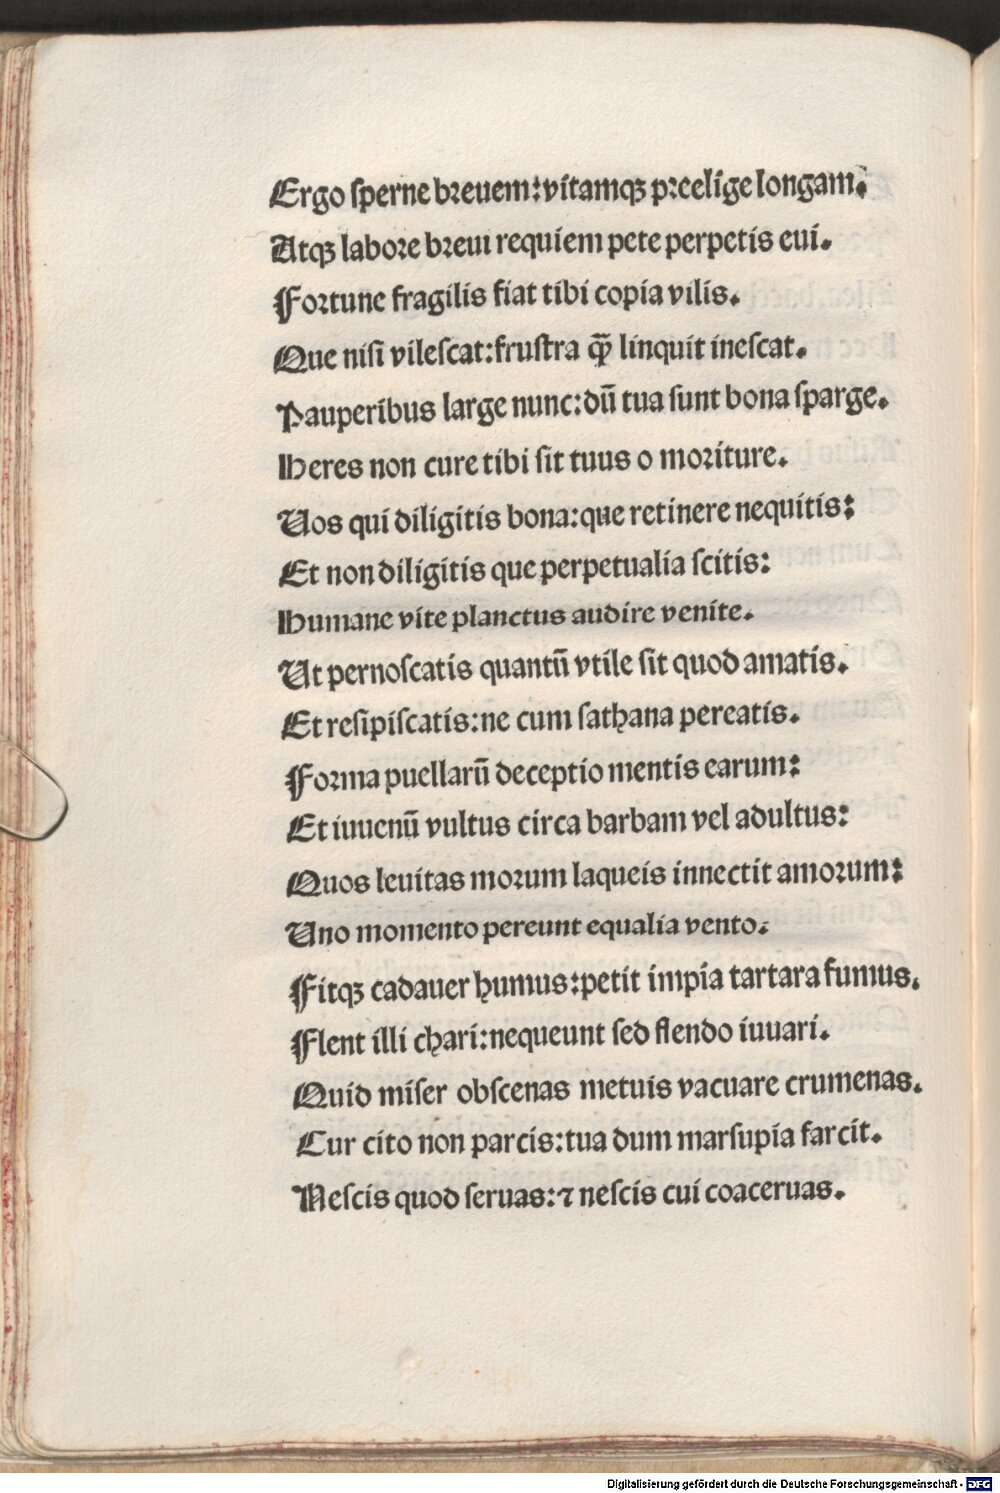 Ergo ſperne breuem:vitamqꝫ preelige longam.
Atqꝫ labore breui requiem pete perpetis eui.
Fortune fragilis fiat tibi copia vilis.
Que niſi vileſcat:fruſtra qꝫ̃ linquit ineſcat.
Pauperibus large nunc:dū tua ſunt bona ſparge.
Heres non cure tibi ſit tuus o moriture.
Uos qui diligitis bona:que retinere nequitis:
Et non diligitis que perpetualia ſcitis:
Humane vite planctus audire venite.
Ut pernoſcatis quantū vtile ſit quod amatis.
Et reſipiſcatis:ne cum ſathana pereatis.
Forma puellarū deceptio mentis earum:
Et iuuenū vultus circa barbam vel adultus:
Quos leuitas morum laqueis innectit amorum:
Uno momento pereunt equalia vento.
Fitqꝫ cadauer humus:petit impia tartara fumus.
Flent illi chari:nequeunt ſed flendo iuuari.
Quid miſer obſcenas metuis vacuare crumenas.
Cur cito non parcis:tua dum marſupia farcit.
Neſcis quod ſeruas:⁊ neſcis cui coaceruas.
Digitalisierung gefördert durch die Deutsche Forschungsgemeinschaft - DFG